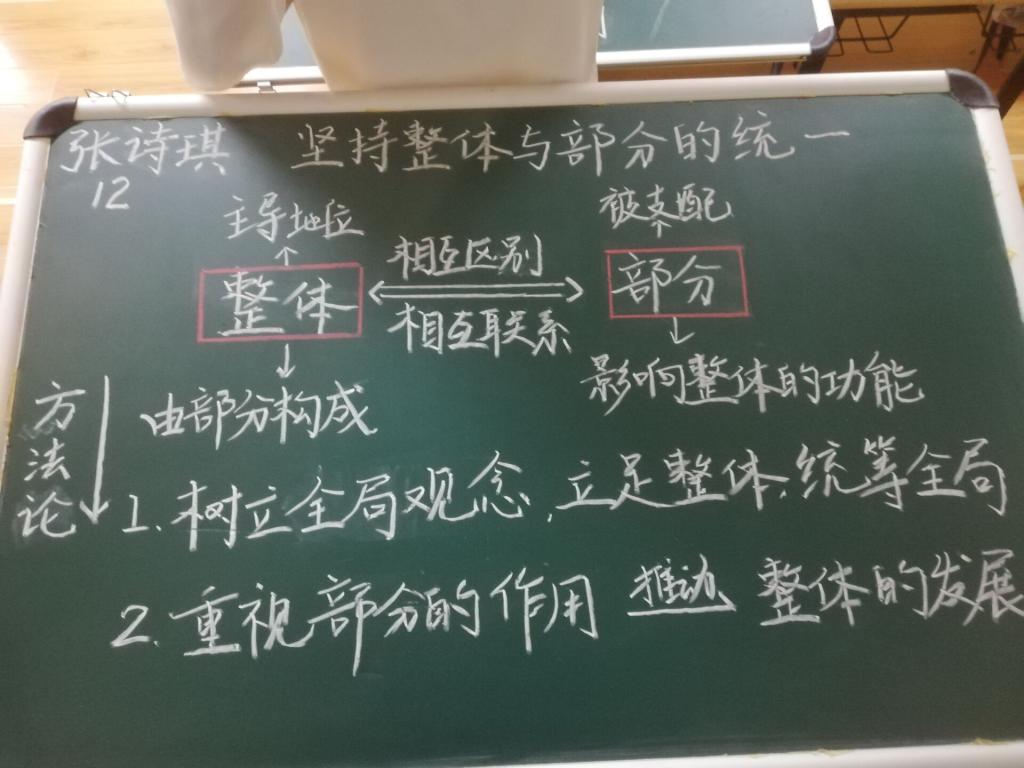 张诗琪 坚持整体与部分的统一
12
主导地位 被支配
↑ ↑
相互区别
整体 部分
相互联系
↓ ↓
影响整体的功能
由部分构成
方法论
1.树立全局观念,立足整体,统等全局
2.重视部分的作用 推动 整体的发展